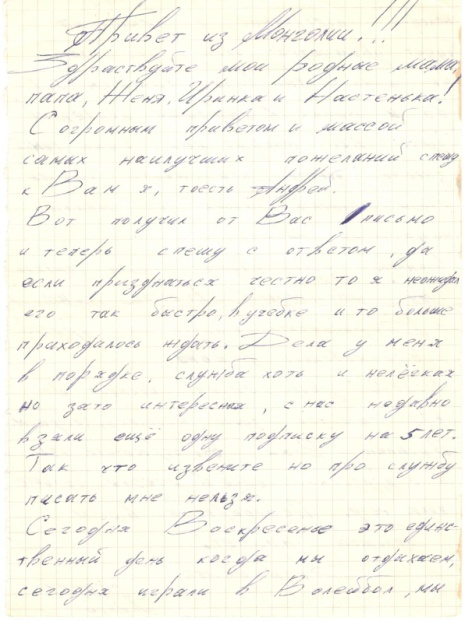 Привет из Монголии..!!!
Здраствуйте мои родные мама,
папа, Женя, Иринка и Настенька!
С огромным приветом и массой
самых наилучших пожеланий спешу
к Вам я, тоесть Андрей.
Вот получил от Вас письмо
и теперь спешу с ответом, да
если признаться честно то я неожидал
его так быстро, в учебке и то больше
приходилось ждать. Дела у меня
в порядке, служба хоть и нелёгкая
но зато интересная, с нас недавно
взяли ещё одну подписку на 5 лет.
Так что извените но про службу
писать мне нельзя.
Сегодня Воскресенье это единс-
твенный день когда мы отдыхаем,
сегодня играли в Волейбол, мы